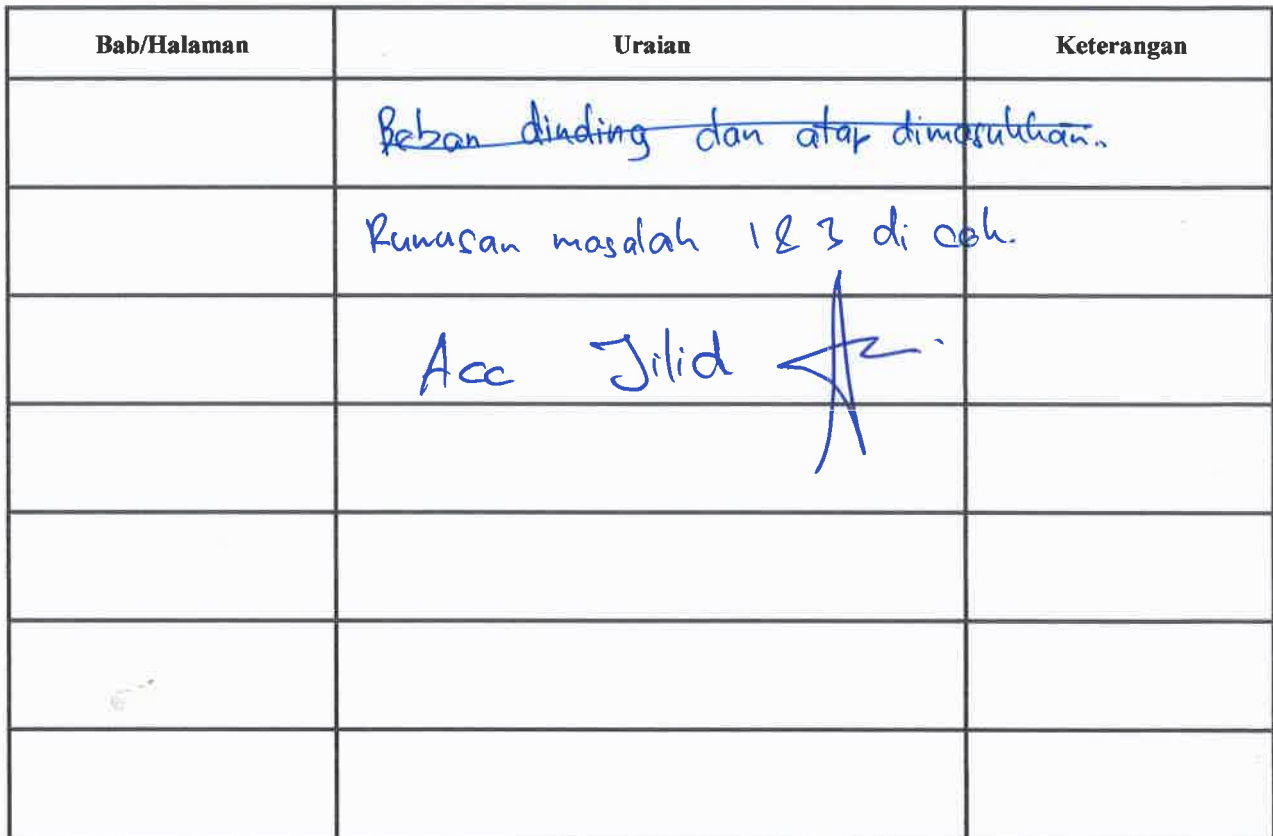 Bab/Halaman Uraian Keterangan
Beban dinding dan atap dimasukkan..
Rumusan masalah 1 & 3 di cek.
Acc Jilid